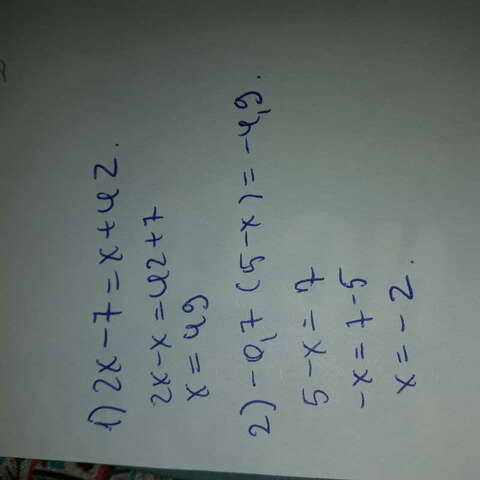 1) 2x - 7 = x + 42.
2x - x = 42 + 7
x = 49
2) -0,7 (5 - x) = -4,9.
5 - x = 7
-x = 7 - 5
x = -2.